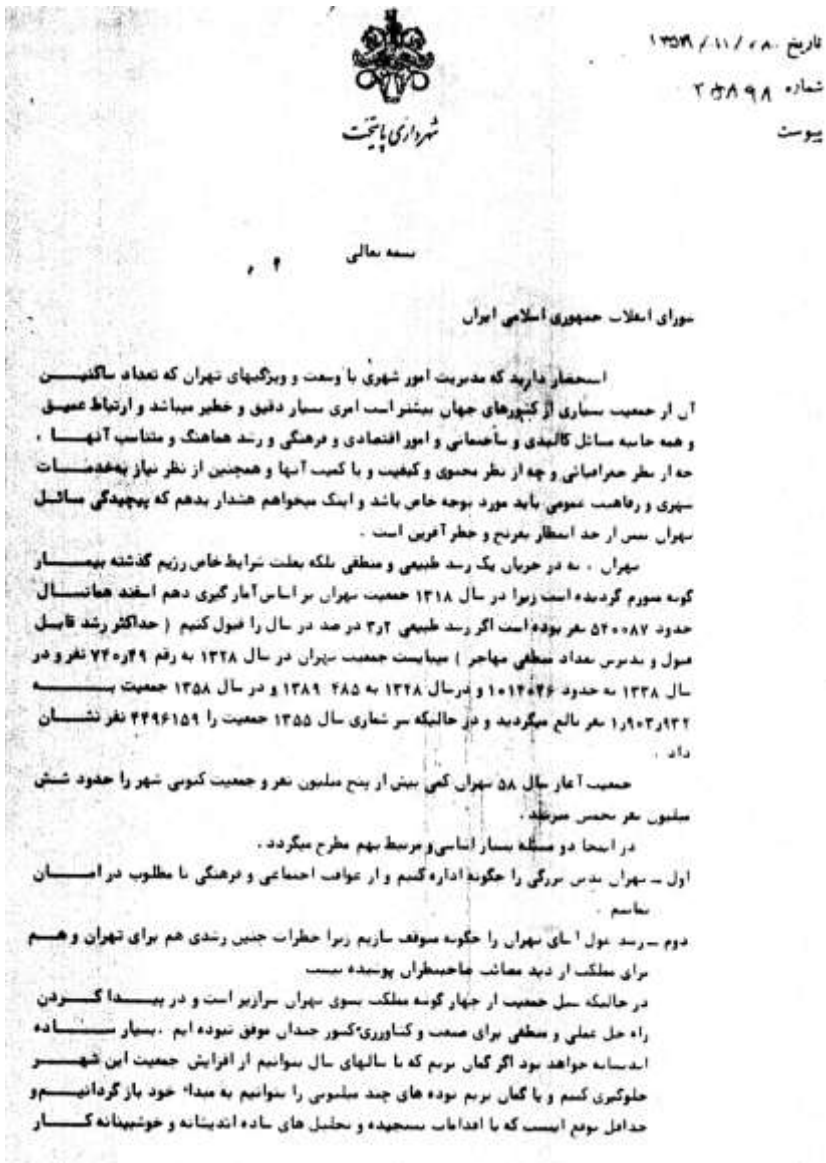 تاریخ ۱۳۵۸/۱۱/۰۸
شماره ۲۵۸۹۸
پیوست
شهرداری پایتخت
بسمه تعالی
شورای انقلاب جمهوری اسلامی ایران
استحضار دارید که مدیریت امور شهری با وسعت و ویژگیهای تهران که تعداد ساکنین
آن از جمعیت بسیاری از کشورهای جهان بیشتر است امری بسیار دقیق و خطیر میباشد و ارتباط عمیق
و همه جانبه مسائل کالبدی و ساختمانی و امور اقتصادی و فرهنگی و رشد هماهنگ و متناسب آنها ،
چه از نظر جغرافیائی و چه از نظر محتوی و کیفیت و یا کمیت آنها و همچنین از نظر نیاز به خدمات
شهری و رفاهیت عمومی باید مورد توجه خاص باشد و اینک میخواهم هشدار بدهم که پیچیدگی مسائل
تهران بیش از حد انتظار بغرنج و خطر آفرین است .
تهران ، نه در جریان یک رشد طبیعی و منطقی بلکه بعلت شرایط خاص رژیم گذشته بیمار
گونه متورم گردیده است زیرا در سال ۱۳۱۸ جمعیت تهران بر اساس آمار گیری دهم اسفند همانسال
حدود ۵۴۰۰۸۷ نفر بوده است اگر رشد طبیعی ۳٫۲ در صد در سال را قبول کنیم ( حداکثر رشد قابل
قبول و پذیرش تعداد منطقی مهاجر ) میبایست جمعیت تهران در سال ۱۳۲۸ به رقم ۷۴۰٫۰۴۹ نفر و در
سال ۱۳۳۸ به حدود ۱۰۱۴۰۴۶ و درسال ۱۳۴۸ به ۱۳۸۹۴۸۵ و در سال ۱۳۵۸ جمعیت به
۱٫۹۰۳٫۹۲۲ نفر بالغ میگردید و در حالیکه سر شماری سال ۱۳۵۵ جمعیت را ۴۴۹۶۱۵۹ نفر نشان
داد .
جمعیت آغاز سال ۵۸ تهران کمی بیش از پنج میلیون نفر و جمعیت کنونی شهر را حدود شش
میلیون نفر تخمین میزنند .
در اینجا دو مسئله بسیار اساسی و مرتبط بهم مطرح میگردد .
اول ـ تهران بدین بزرگی را چگونه اداره کنیم و از عواقب اجتماعی و فرهنگی نا مطلوب در امان
بمانیم .
دوم ـ رشد غول آسای تهران را چگونه متوقف سازیم زیرا خطرات چنین رشدی هم برای تهران و هم
برای مملکت از دید صاحبنظران پوشیده نیست
در حالیکه سیل جمعیت از چهار گوشه مملکت بسوی تهران سرازیر است و در پیدا کردن
راه حل عملی و منطقی برای صنعت و کشاورزی کشور چندان موفق نبوده ایم . بسیار ساده
اندیشانه خواهد بود اگر گمان بریم که تا سالهای سال بتوانیم از افزایش جمعیت این شهر
جلوگیری کنیم و یا گمان بریم توده های چند میلیونی را بتوانیم به مبداء خود باز گردانیم و
حداقل توقع اینست که با اقدامات نسنجیده و تحلیل های ساده اندیشانه و خوشبینانه کار